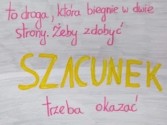 to droga, która biegnie w dwie
strony. Żeby zdobyć
SZACUNEK
trzeba okazać